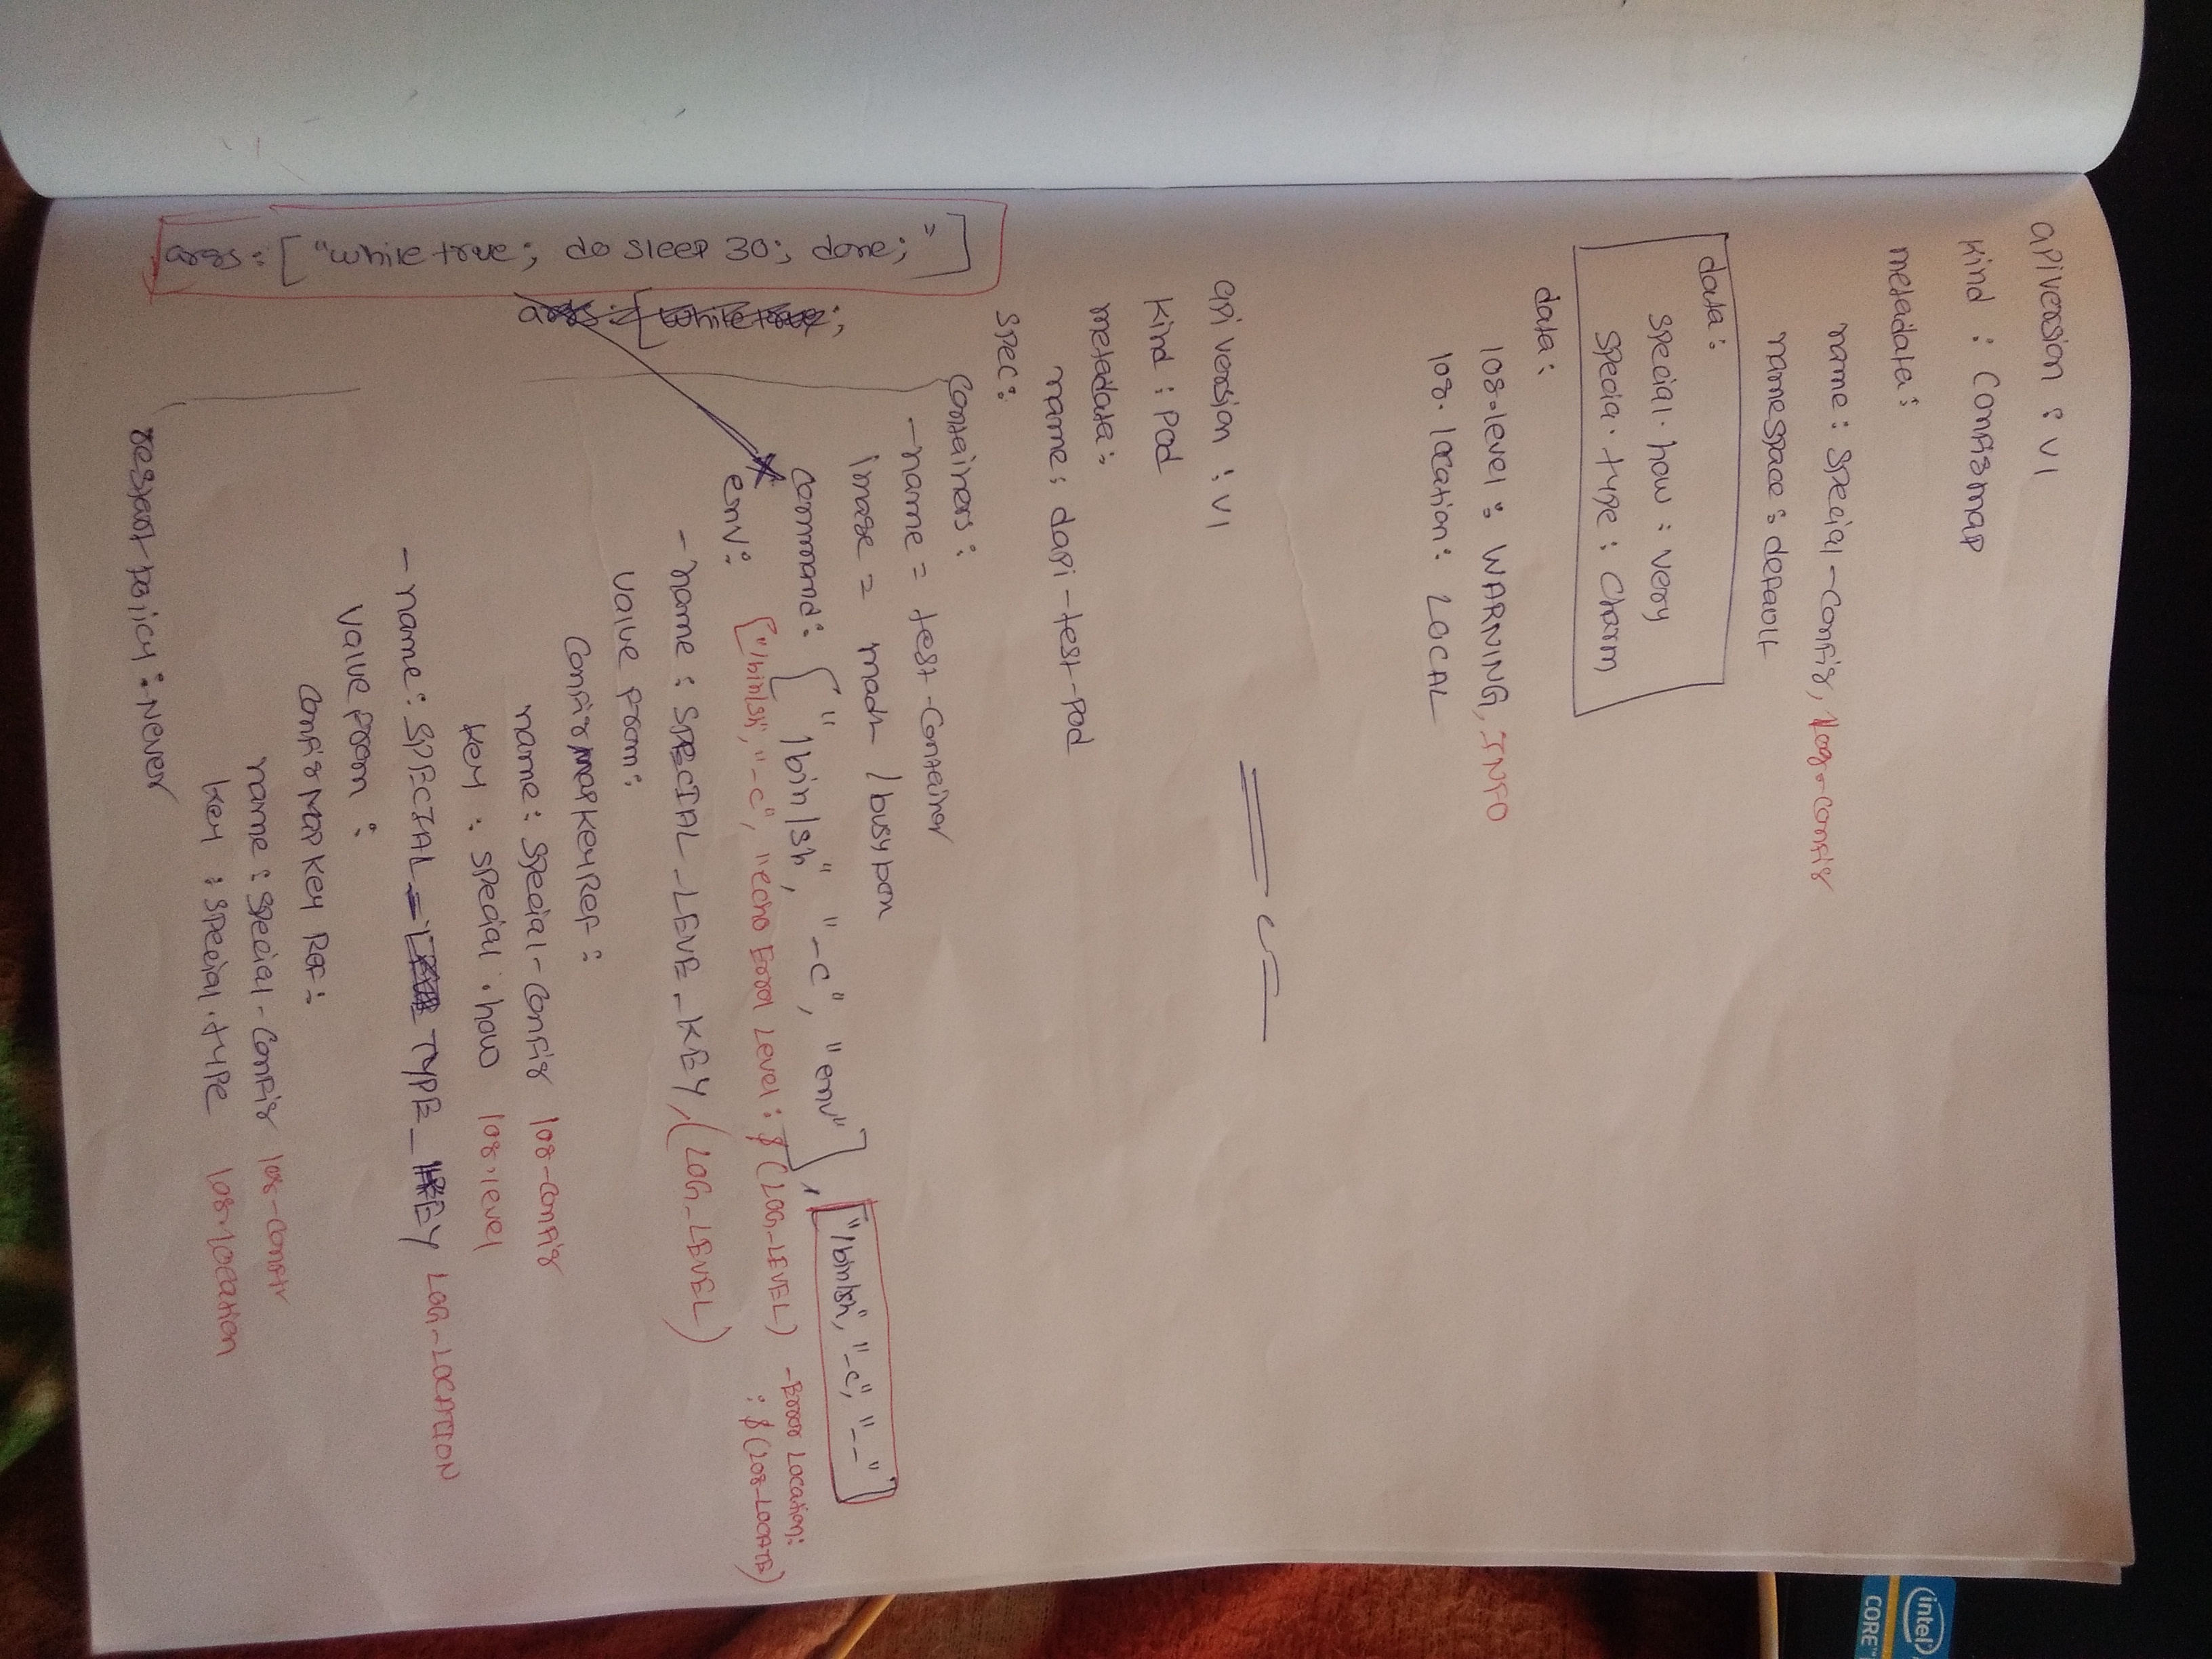 apiversion : v1
kind : Configmap
metadata:
name: special-config, log-config
namespace: default
data:
special.how : very
specia.type: charm
data:
log.level: WARNING, INFO
log.location: LOCAL
api version : v1
kind : Pod
metadata:
name: dapi-test-pod
spec:
containers:
-name = test-container
image =  /busybox
command: ["/bin/sh", "-c", "env"], ["/bin/sh", "-c", "--"]
["/bin/sh", "-c", "echo Error Level: $(LOG_LEVEL) -Error Location:
: $(LOG-LOCATE)
env:
-name: SPECIAL_LEVE_KEY, (LOG_LEVEL)
value from:
configmapkeyRef:
name: special-config log-config
key : special.how log.level
-name: SPECIAL_ TYPE_KEY LOG-LOCATION
valuefrom :
configMapKey Ref:
name: special-config log-config
key : special.type log.location
restart policy: Never
args: ["while true; do sleep 30; done;"]
args: [while true;
intel
CORE™